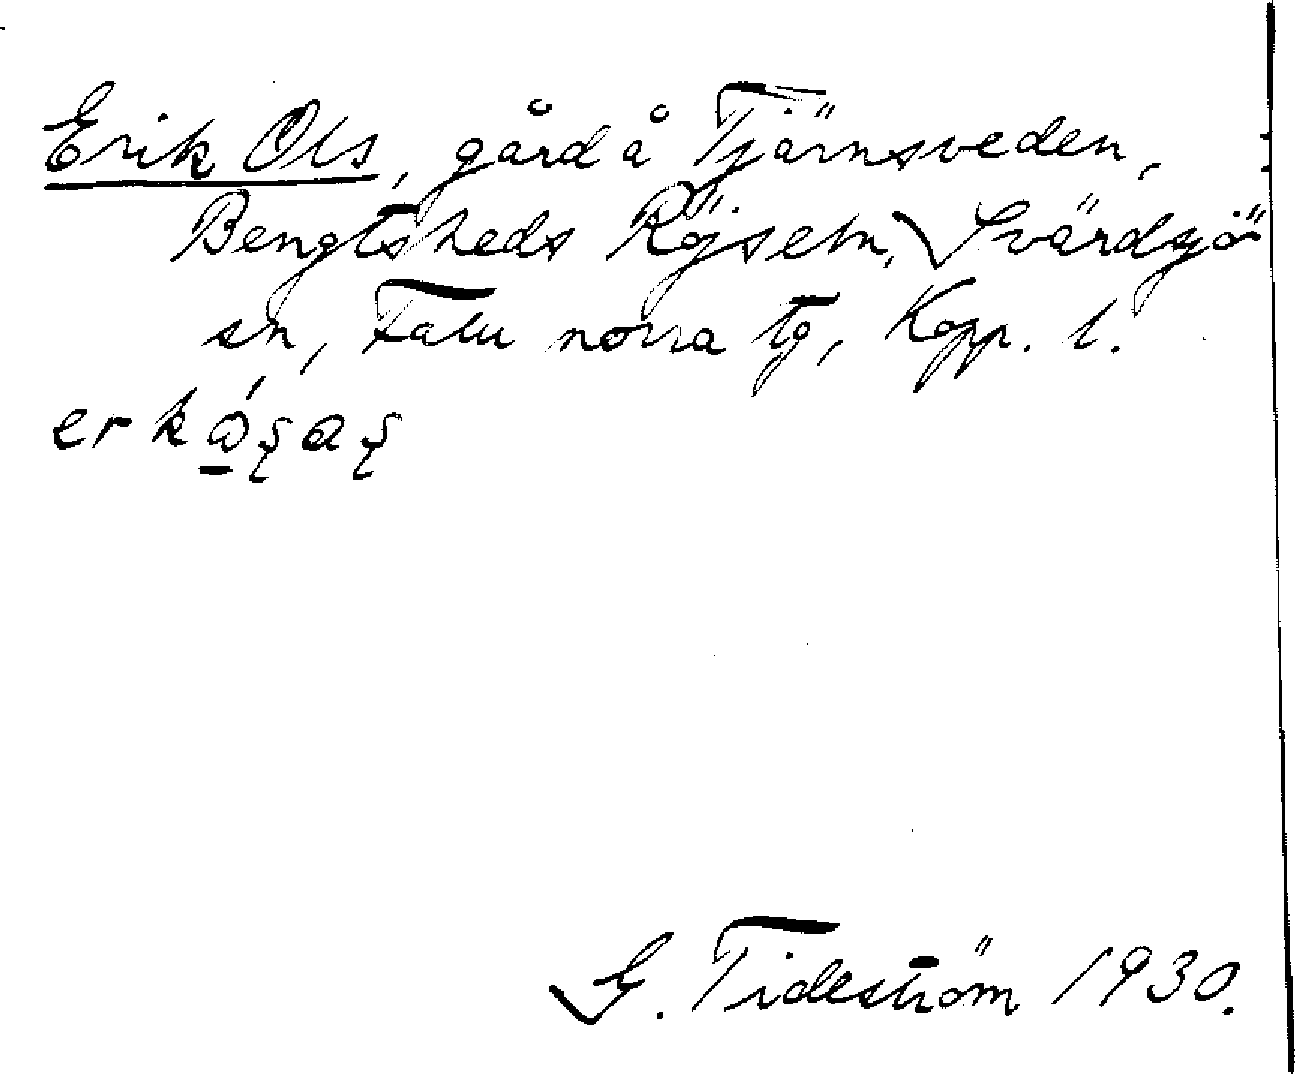 Erik Ols, gård å Tjärnsveden,
Bengtsheds Röjseln, Svärdsjö
sn, Falu norra tg, Kopp. l.
G. Tideström 1930.